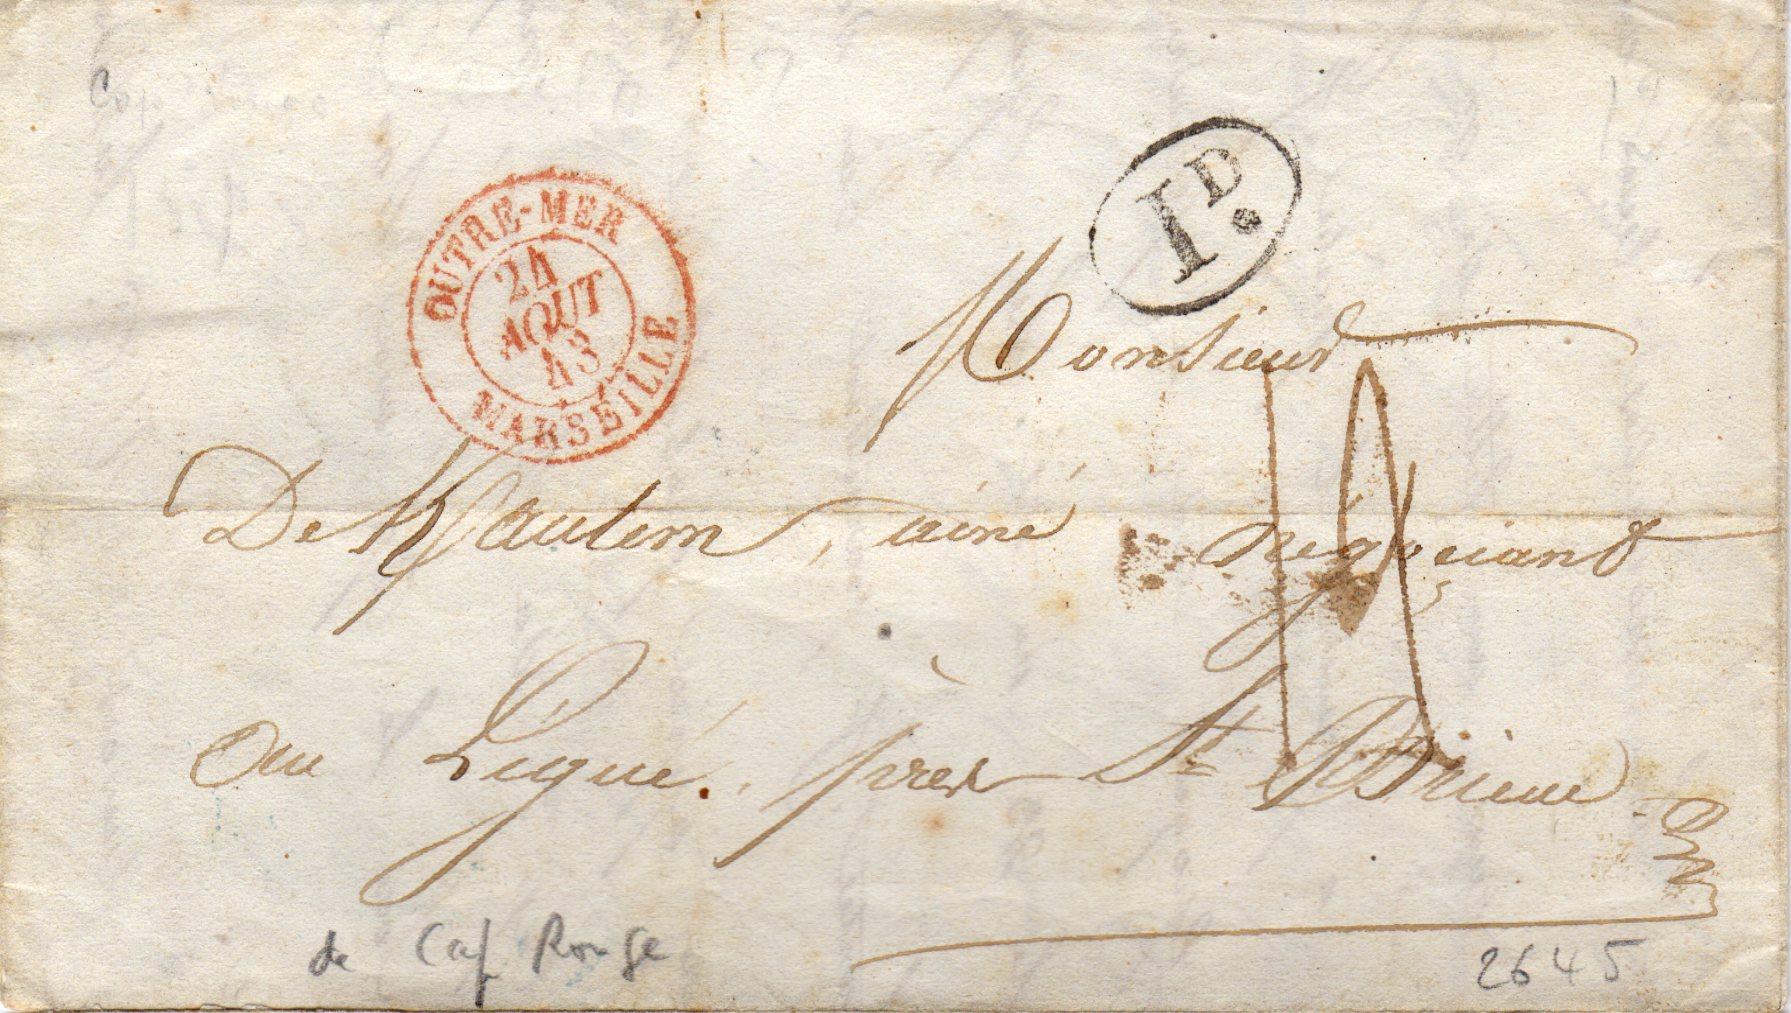 Cap Rouge
OUTRE-MER
24
AOUT
43
MARSEILLE
1D.
Monsieur
aîné négociant
au Légué. près St Brieuc
14
de Cap Rouge
2645